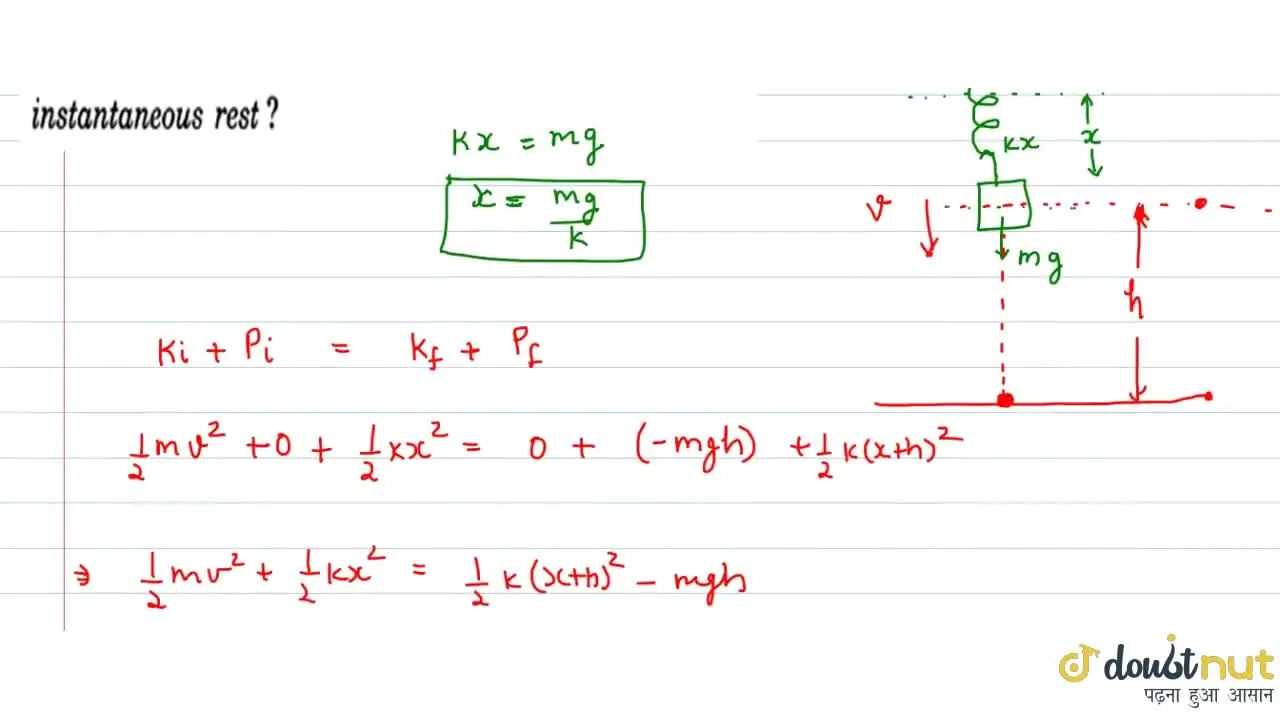 instantaneous rest ?
kx = mg
x = mg/k
kx
x
v
mg
h
Ki + Pi = Kf + Pf
1/2 mv² + 0 + 1/2 kx² = 0 + (-mgh) + 1/2 k(x+h)²
⇒ 1/2 mv² + 1/2 kx² = 1/2 k(x+h)² - mgh
doubtnut
पढ़ना हुआ आसान